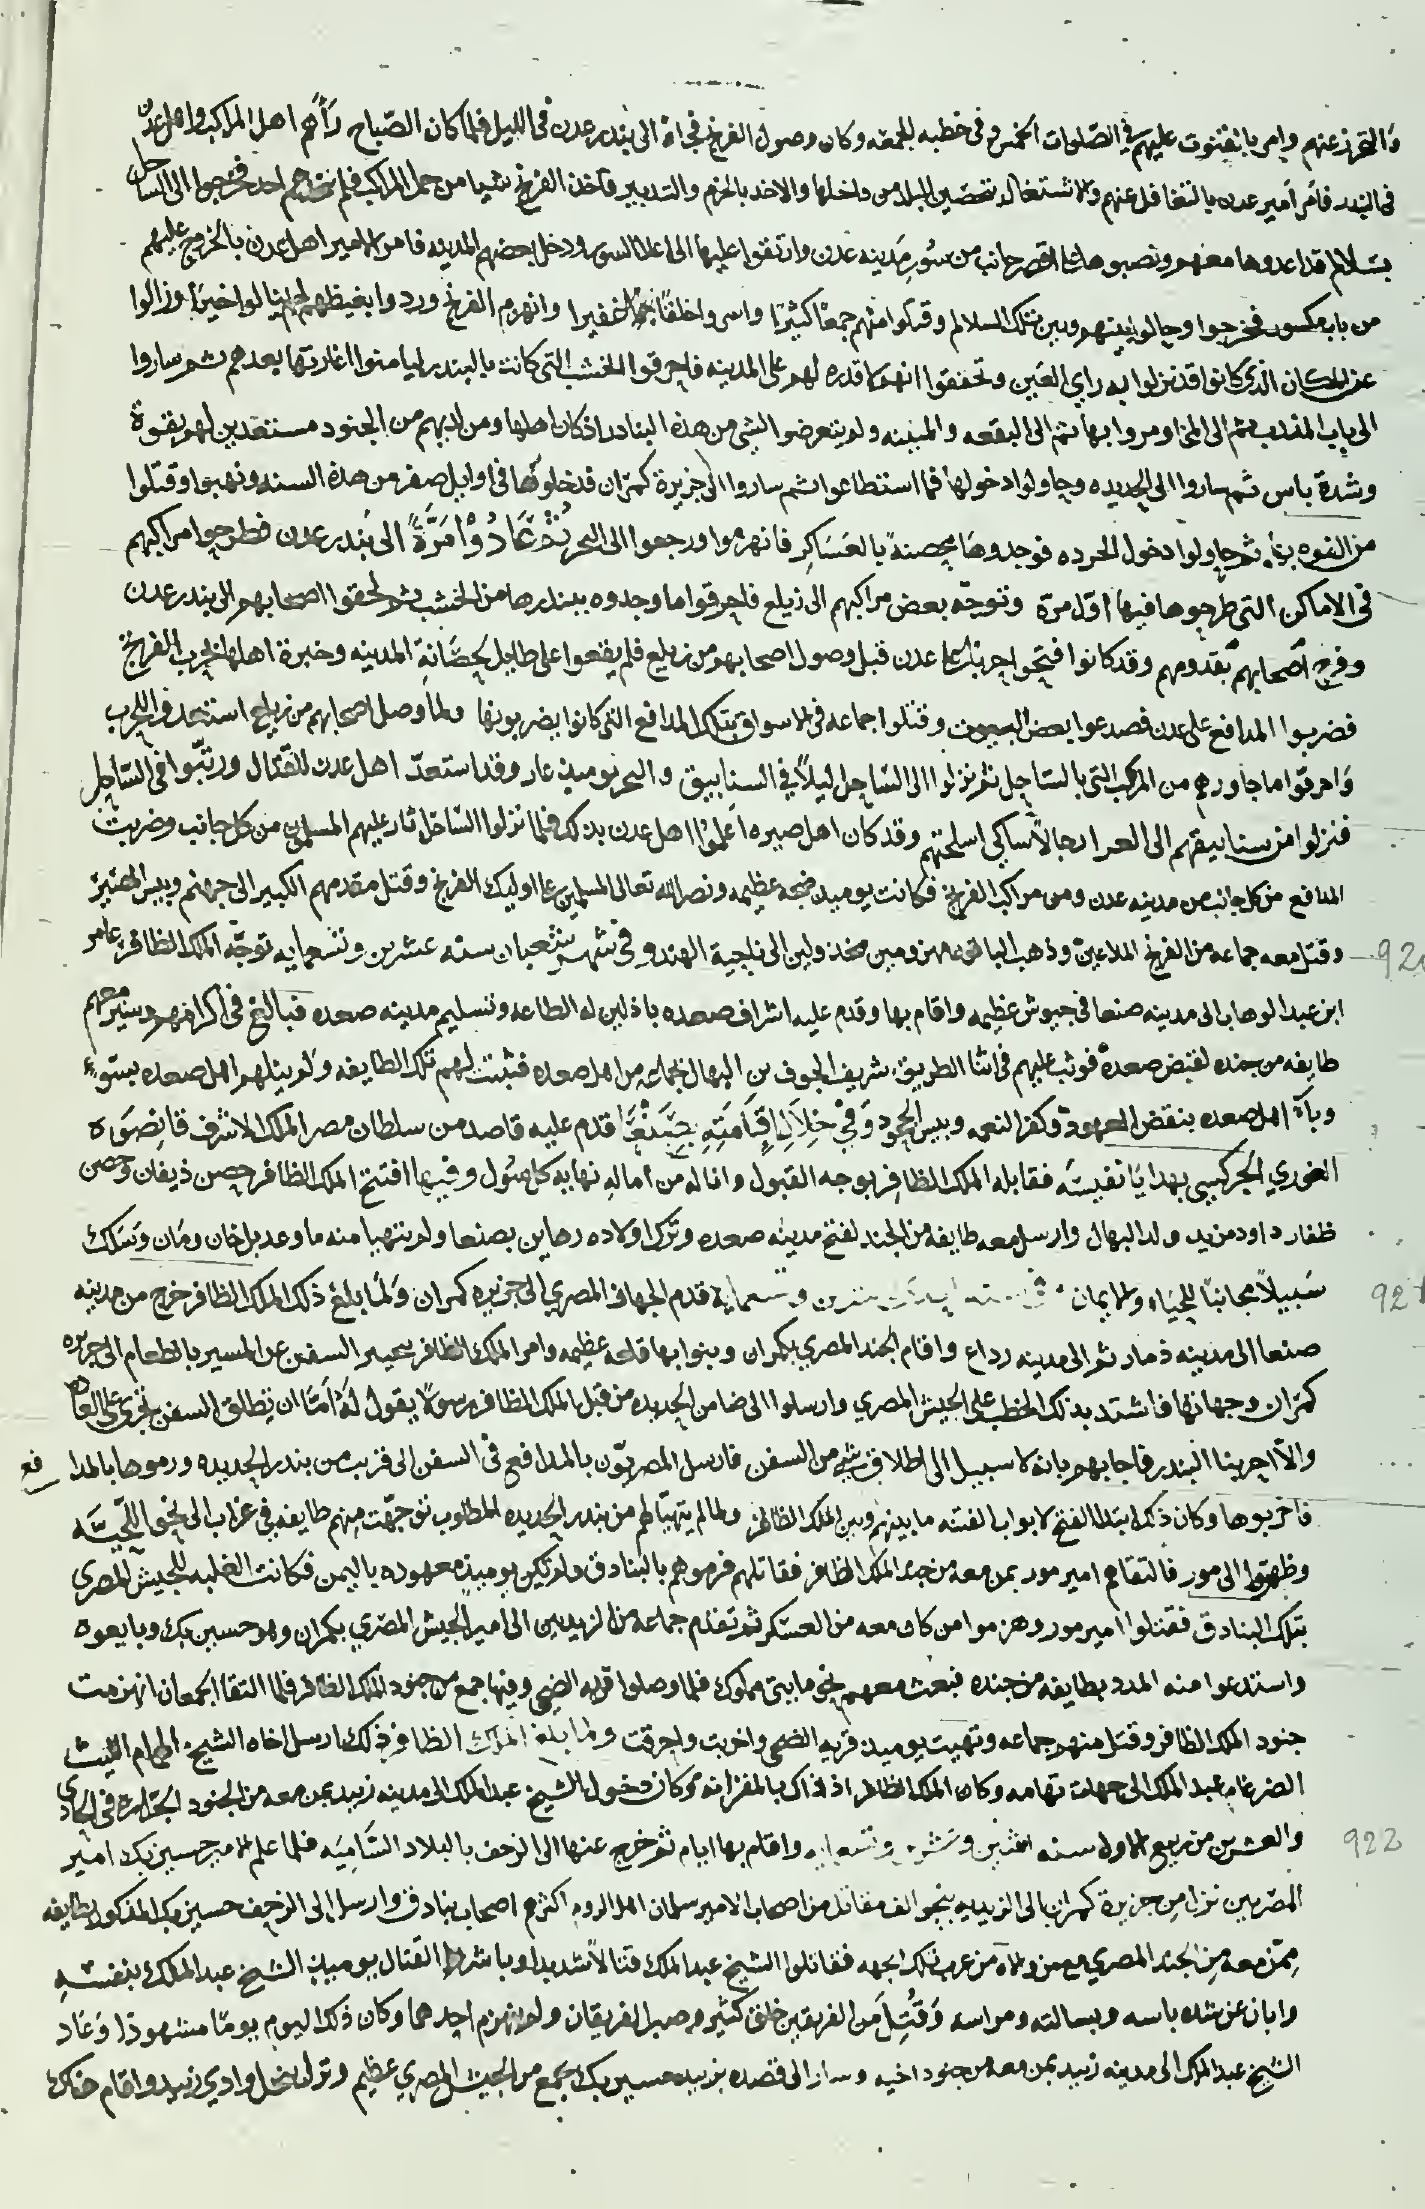 والتحرز عنهم وامر بالقنوت عليهم في الصلوات الخمس وفي خطبه الجمعه وكان وصول الفرنج فجاة الى بندر عدن في الليل فلما كان الصباح رأهم اهل المراكب واهل عدن
في البندر فامر امير عدن بالتغافل عنهم والاشتغال بتحصين البلد من داخلها والاخذ بالحزم والتدبير فاخذ الفرنج شيا من حمل المراكب فلم احد فخرجوا الى الساحل
بسلالم قد اعدوها معهم ونصبوها جانب من سور مدينه عدن وارتقوا عليها الى اعلا السور ودخل بعضهم المدينه فامر الامير اهل عدن بالخروج عليهم
من باب مكسور فخرجوا وحالوا بينهم وبين تلك السلالم وقتلوا منهم جمعا كثيرا واسروا خلقا جما غفيرا وانهزم الفرنج وردوا بغيظهم لم ينالوا خيرا وزالوا
عن المكان الذي كانوا قد نزلوا به راي العين وتحققوا انه لا قدره لهم على المدينه فاحرقوا الخشب التي كانت بالبندر ليامنوا اغارتها بعدهم ثم ساروا
الى باب المندب ثم الى المخا ومروا بها ثم الى البقعه والمتينه ولم يتعرضوا لشي من هذه البنادر اذ كان اهلها ومن لديهم من الجنود مستعدين لهم بقوة
وشدة باس ثم ساروا الى الحديده وحاولوا دخولها فما استطاعوا ثم ساروا الى جزيرة كمران فدخلوها في اوايل صفر من هذه السنه ونهبوا وقتلوا
من القوه بها ثم حاولوا دخول الحرده فوجدوها محصنة بالعساكر فانهزموا ورجعوا الى البحر ثم عادوا مرة الى بندر عدن فطرحوا مراكبهم
في الاماكن التي طرحوها فيها اول مرة وتوجه بعض مراكبهم الى زيلع فاحرقوا ما وجدوه ببندرها من الخشب ثم لحقوا اصحابهم الى بندر عدن
وفرح اصحابهم بقدومهم وقد كانوا فتحوا حربا على عدن قبل وصول اصحابهم من زيلع فلم يقعوا على طايل لحصانة المدينه وخبرة اهلها بحرب الفرنج
فضربوا المدافع على عدن فصدعوا بعض البيوت وقتلوا جماعه في الاسواق بتلك المدافع التي كانوا يضربونها ولما وصل اصحابهم من زيلع استعدوا للحرب
واحرقوا ما جاورهم من المركب التي بالساحل ثم نزلوا الى الساحل ليلا في السنابيق والبحر يوميذ عار وقد استعد اهل عدن للقتال ورتبوا في الساحل
فنزلوا من سنابيقهم الى رجالا شاكي اسلحتهم وقد كان اهل صيره اعلموا اهل عدن بذلك فلما نزلوا الساحل ثار عليهم المسلمون من كل جانب وضربت
المدافع من كل جانب من مدينه عدن ومن مراكب الفرنج فكانت يوميذ ضجه عظيمه ونصر الله تعالى المسلمين على اوليك الفرنج وقتل مقدمهم الكبير الى جهنم وبيس المصير
وقتل معه جماعه من الفرنج الملاعين وذهب الباقون مخذولين الى ناحية الهند وفي شهر شعبان سنه عشرين وتسعمايه توجه الملك الظافر عامر
920
ابن عبد الوهاب الى مدينه صنعا في جيوش عظيمه واقام بها وقدم عليه اشراف صعده باذلين له الطاعه وتسليم مدينه صعده فبالغ في اكرامهم وسير معهم
طايفه من جنده لقبض صعدة فوثب عليهم في اثنا الطريق شريف الجوف بن البهال بجماعه من اهل صعده فثبتت لهم تلك الطايفه ولم ينلهم اهل صعده بسوء
وبآ اهل صعده بنقض العهود وكفر النعمه وبيس الجحود وفي خلال اقامته بصنعا قدم عليه قاصد من سلطان مصر الملك الاشرف قانصوه
الغوري الجركسي بهدايا نفيسه فقابله الملك الظافر بوجه القبول وانا له من اماله نهايه كل سول وفيها افتتح الملك الظافر حصن ذيفان وحصن
ظفار داود من يد ولد البهال وارسل معه طايفه من الجند لفتح مدينه صعده وترك اولاده رهاين بصنعا ولم يتهيا منه ما وعد بل خان ومان وسلك
سبيلا مجانبا للحياء والايمان سنه احدى وعشرين وتسعماية قدم الجهاز المصري الى جزيره كمران ولما بلغ ذلك الملك الظافر خرج من مدينه
921
صنعا الى مدينه ذمار ثم الى مدينه رداع واقام الجند المصري بكمران وبنوا بها قلعه عظيمه وامر الملك الظافر بتحيير السفن عن المسير بالطعام الى جزيره
كمران وجهاتها فاشتد بذلك الخطب على الجيش المصري وارسلوا الى ضامن الحديده من قبل الملك الظافر رسولا يقول له اما ان تطلق السفن تجري على العاده
والا اخربنا البندر فاجابهم بانه لا سبيل الى اطلاق شي من السفن فارسل المصريون بالمدافع في السفن الى قرب من بندر الحديده ورموها بالمدا فع
فاخربوها وكان ذلك ابتدا الفتح لابواب الفتنه ما بينهم وبين الملك الظافر ولما لم يتهيا لهم من بندر الحديده المطلوب توجهت منهم طايفه في غراب الى نحو اللحيه
وظهروا الى مور فالتقاهم امير مور بمن معه من جند الملك الظافر فقاتلهم فرموهم بالبنادق ولم تكن يوميذ معهوده باليمن فكانت الغلبه للجيش المصري
بتلك البنادق فقتلوا امير مور وهزموا من كان معه من العسكر ثم تقدم جماعه من الزيديين الى امير الجيش المصري بكمران وهو حسين بك وبايعوه
واستدعوا منه المدد بطايفه من جنده فبعث معهم نحو مايتي مملوك فلما وصلوا قريه الضحي وفيها جمع من جنود الملك الظافر فلما التقا الجمعان انهزمت
جنود الملك الظافر وقتل منهم جماعه ونهبت يوميذ قريه الضحي واخربت واحرقت ولما بلغ الملك الظافر ذلك ارسل اخاه الشيخ الهمام الليث
الضرغام عبد الملك الى جهات تهامه وكان الملك الظافر اذ ذاك بالمقرانه وكان دخول الشيخ عبد الملك الى مدينه زبيد بمن معه من الجنود الجراره في الحادي
والعشرين من ربيع الاول سنه اثنين وعشرين وتسعمايه واقام بها ايام ثم خرج عنها الى الزحف بالبلاد الشاميه فلما علم الامير حسين بك امير
922
المصريين نزل من جزيرة كمران الى الزيديه بنحو الف مقاتل من اصحاب الامير سلمان اهل الروم اكثرهم اصحاب بنادق وارسل الى الزحف حسين بك المذكور بطايفه
ممن معه من الجند المصري مع من والاه من عرب تلك الجهه فقاتلوا الشيخ عبد الملك قتالا شديدا وباشر القتال يوميذ الشيخ عبد الملك بنفسه
وابان عن شده باسه وبسالته ومراسه وقتل من الفريقين خلق كثير وصبر الفريقان ولم ينهزم احدهما وكان ذلك اليوم يوما مشهودا وعاد
الشيخ عبد الملك الى مدينه زبيد بمن معه من جنود اخيه وسار الى قصده بزبيد حسين بك بجمع من الجيش المصري عظيم ونزل بنخل وادي زبيد واقام هناك